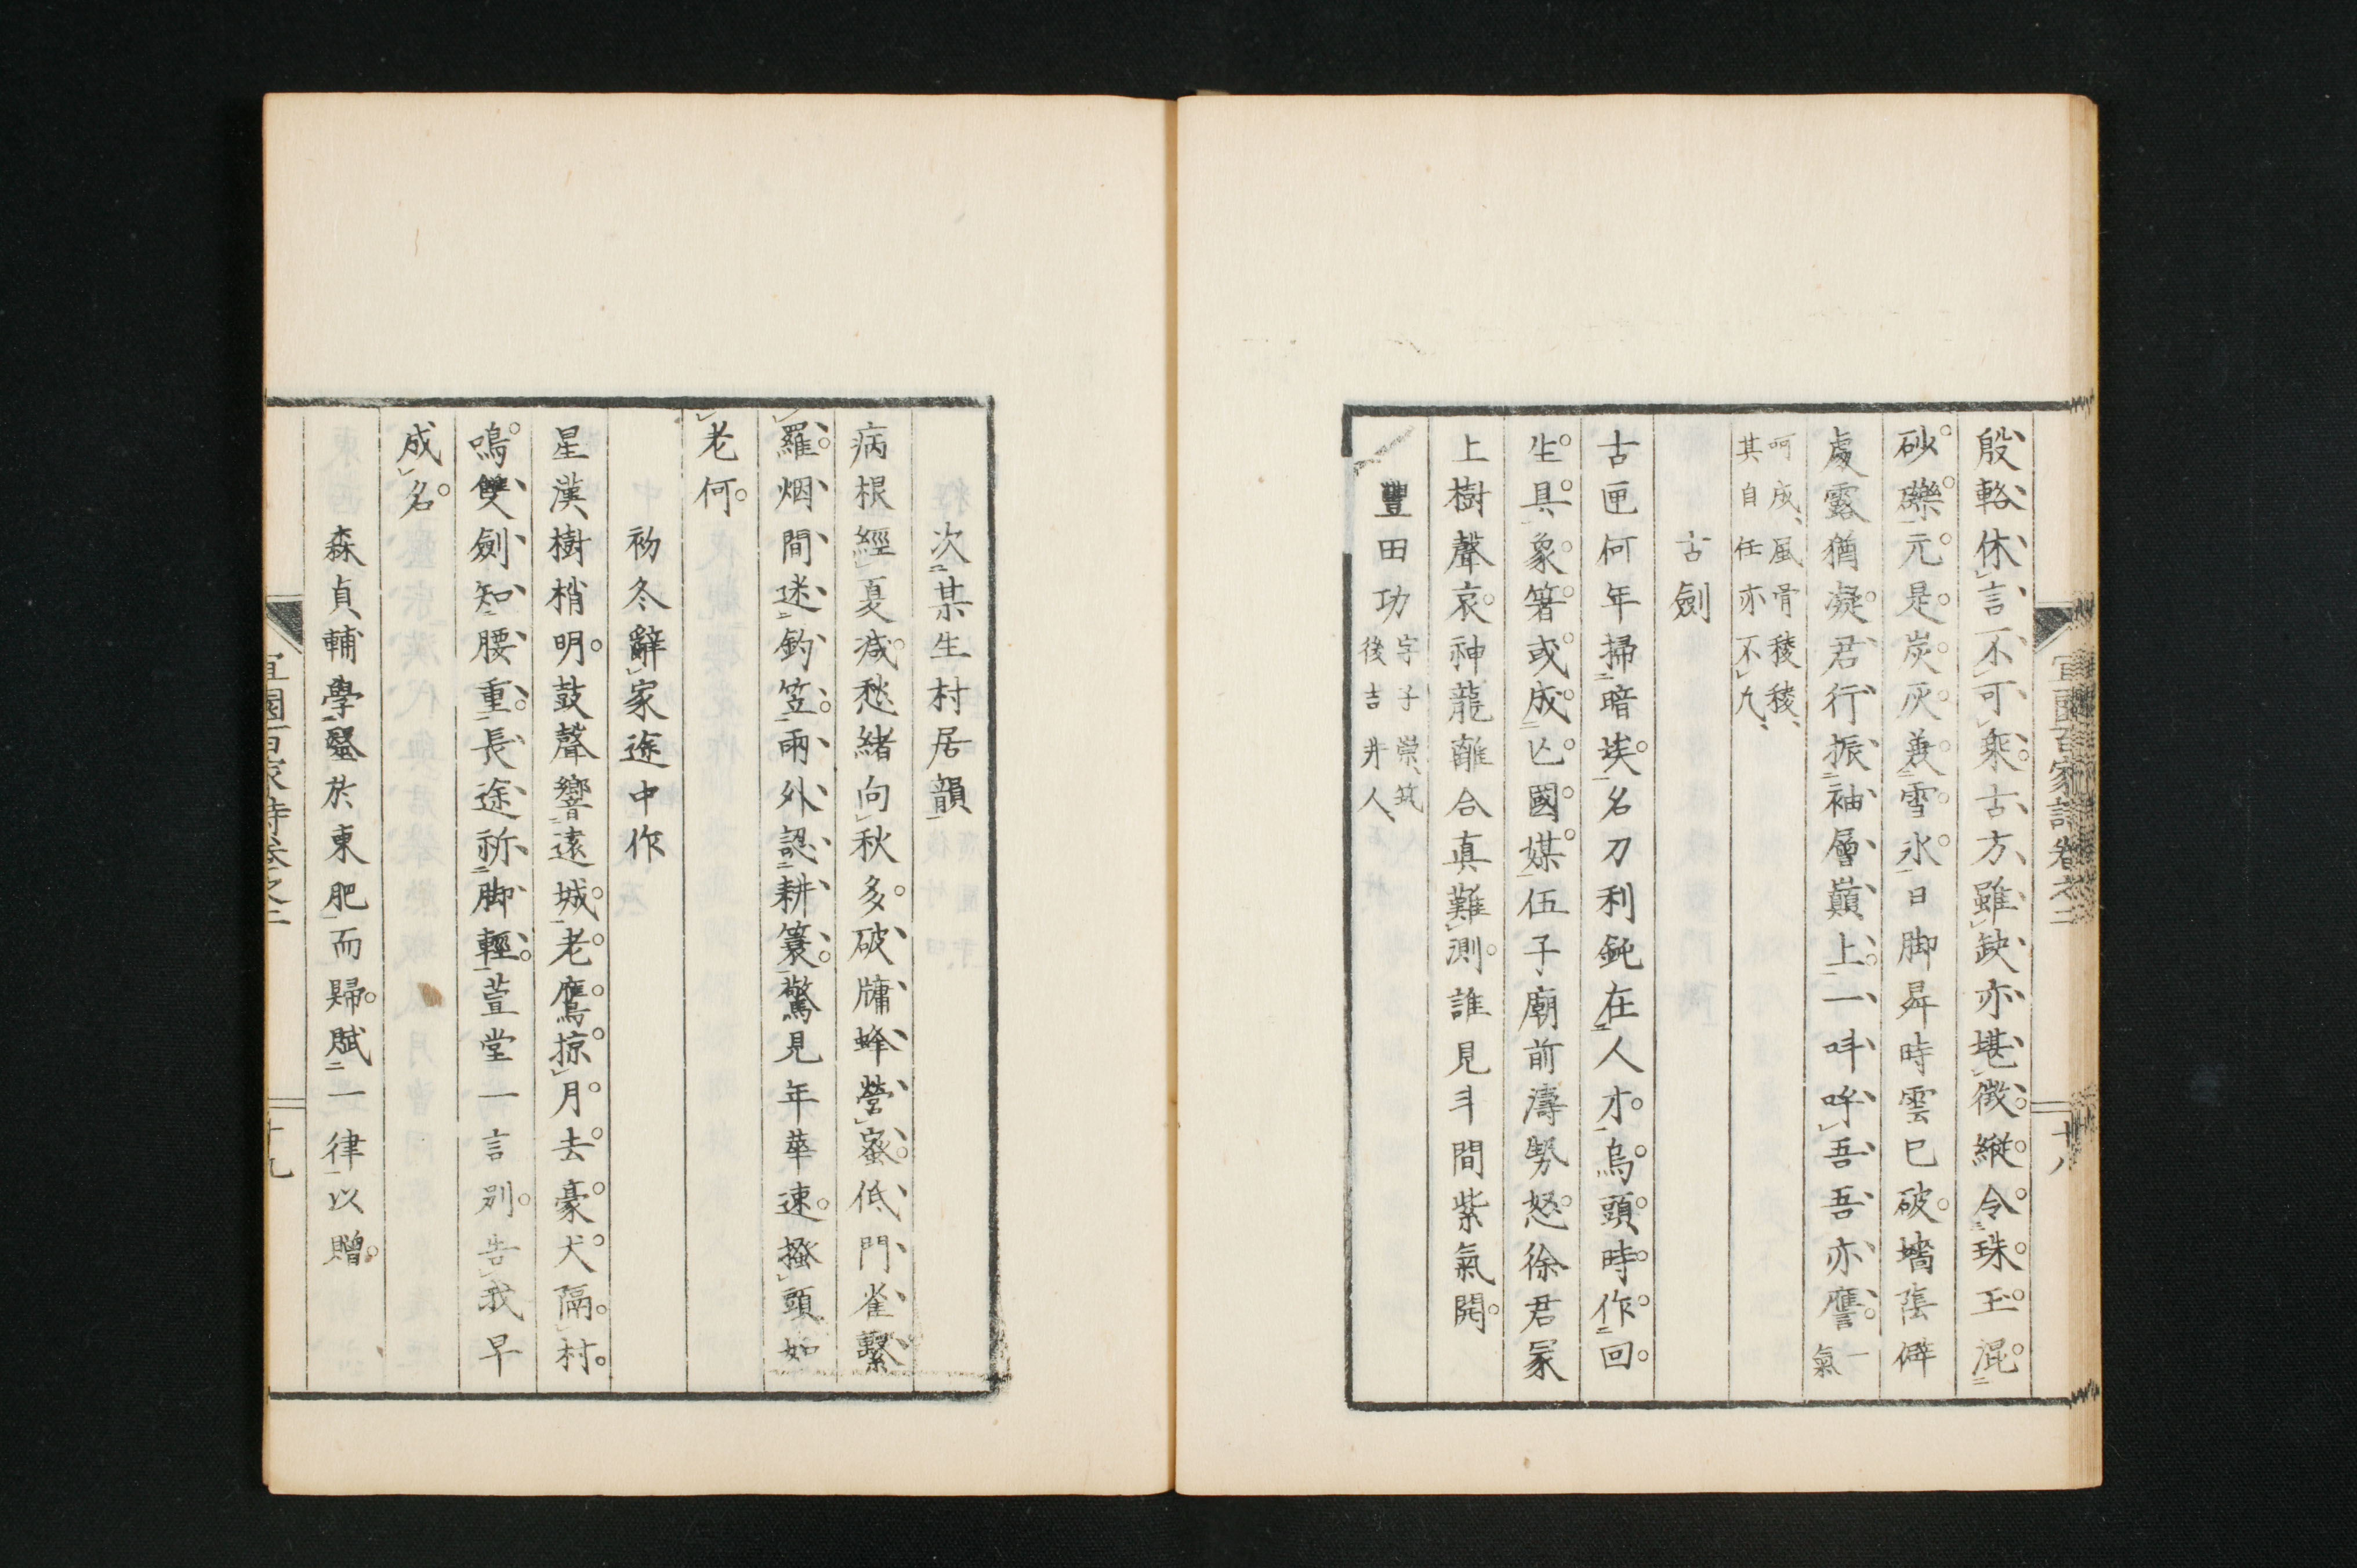 宜園百家詩卷之二
十八
殷輅休言不可乘古方雖缺亦堪徵縱令珠玉混
砂礫元是炭灰兼雪氷日脚昇時雲已破墻陰僻
處露猶凝君行振袖層巓上一呼吾吾亦譍一氣
呵成、風骨稜稜、
其自任亦不凡、
古劍
古匣何年掃暗埃名刀利鈍在人才烏頭時作回
生具象箸或成亡國媒伍子廟前濤勢怒徐君冢
上樹聲哀神龍離合真難測誰見斗間紫氣開
豐田功
字子崇、筑
後吉井人、
次某生村居韻
病根經夏減愁緒向秋多破牖蜂營蜜低門雀繫
羅烟間迷釣笠雨外認耕簑驚見年華速搔頭如
老何
初冬辭家途中作
星漢樹梢明鼓聲響遠城老鷹掠月去豪犬隔村
鳴雙劍知腰重長途祈脚輕萱堂一言別告我早
成名
森貞輔學醫於東肥而歸賦一律以贈
宜園百家詩卷之二
十九